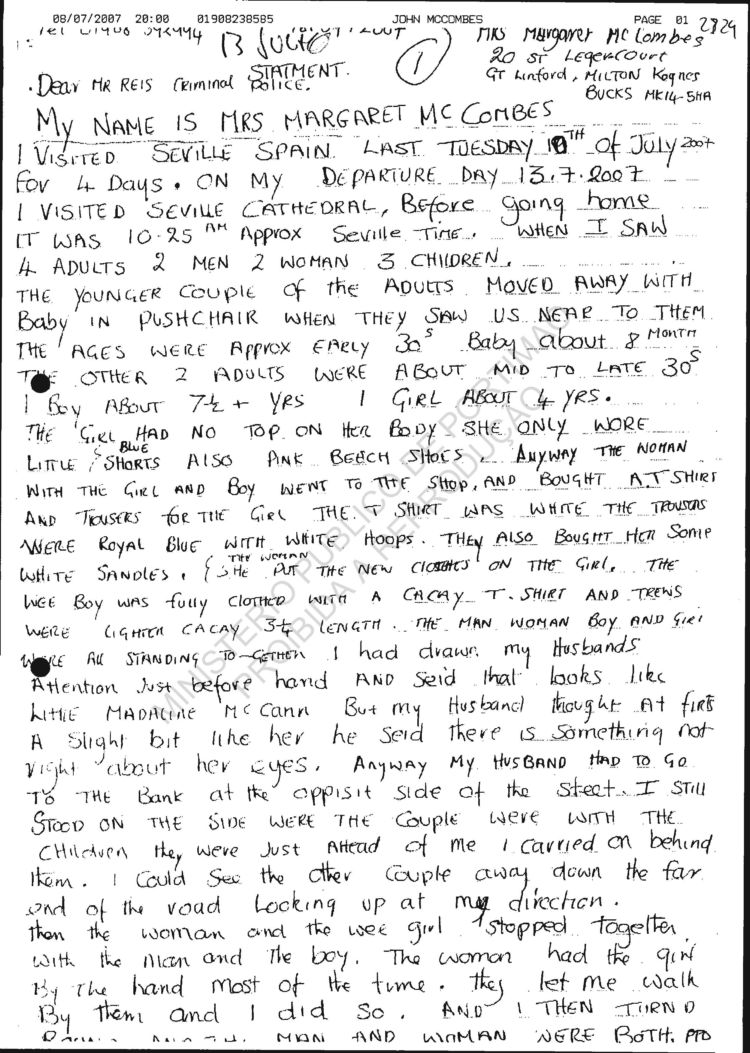 08/07/2007 20:00 01908238585 JOHN MCCOMBES PAGE 01
2824
13 JULIO
1
MRS Margaret McCombes
20 ST Legercourt
GT Linford, MILTON Kegnes
BUCKS MK14-5HA
Dear MR REIS Criminal Police. STATMENT.
My NAME IS MRS MARGARET MC COMBES
I VISITED SEVILLE SPAIN LAST TUESDAY 10TH Of July 2007
For 4 Days. ON MY DEPARTURE DAY 13.7.2007
I VISITED SEVILLE CATHEDRAL, Before going home
IT WAS 10-25 AM Approx Seville Time. WHEN I SAW
4 ADULTS 2 MEN 2 WOMAN 3 CHILDREN.
THE YOUNGER COUPLE Of the ADULTS MOVED AWAY WITH
Baby IN PUSHCHAIR WHEN THEY SAW US NEAR TO THEM
THE AGES WERE Approx EARLY 30s Baby about 8 MONTH
THE OTHER 2 ADULTS WERE ABOUT MID TO LATE 30s
1 Boy ABOUT 7½ + YRS 1 GIRL ABOUT 4 YRS.
THE GIRL HAD NO TOP ON HER BODY SHE ONLY WORE
LITTLE BLUE SHORTS ALSO PINK BEECH SHOES. Anyway THE WOMAN
WITH THE GIRL AND Boy WENT TO THE SHOP, AND BOUGHT A.T SHIRT
AND TROUSERS for THE GIRL THE T SHIRT WAS WHITE THE TROUSERS
WERE ROYAL BLUE WITH WHITE HOOPS. THEY ALSO BOUGHT HER Some
WHITE SANDLES. THE WOMAN SHE PUT THE NEW CLOTHES ON THE GIRL. THE
WEE Boy WAS fully CLOTHED WITH A CACAY T-SHIRT AND TREWS
WERE LIGHTER CACAY 3¼ LENGTH. THE MAN WOMAN Boy AND GIRL
WERE All STANDING TO-GETHER I had drawn my Husbands
Attention Just before hand AND seid that looks like
LITTLE MADALINE MC Cann But my Husband thought At firts
A slight bit like her he seid there is something not
right about her eyes. Anyway MY HUSBAND HAD TO GO
TO THE Bank at the oppisit side of the steet. I STILL
STOOD ON THE SIDE WERE THE Couple were WITH THE
CHILdren they were Just AHead of me I carried on behind
them. I Could See the other Couple away down the far
end of the road Looking up at my direction.
then the woman and the wee girl stopped togetter
with the man and The boy. The woman had the girl
By The hand most of the time. they let me walk
By them and I did so. AND I THEN TURND
MAN AND WOMAN WERE BOTH. PTO
MINISTÉRIO PÚBLICO DE PORTIMÃO
PROIBIDA A REPRODUÇÃO